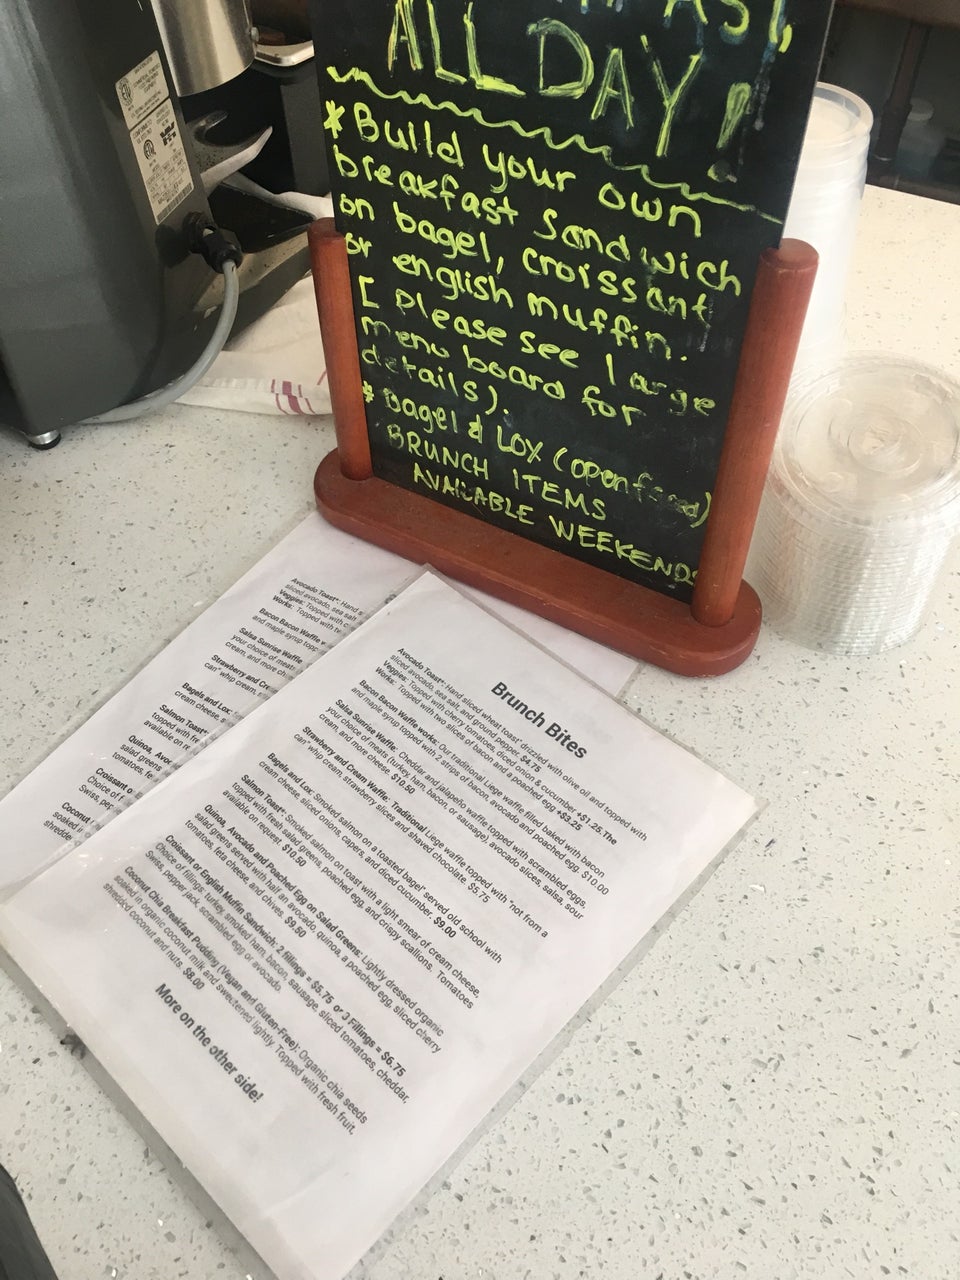 ALL DAY!
* Build your own
breakfast Sandwich
on bagel, croissant
or english muffin.
[ please see large
menu board for
details).
* Bagel & LOX (openfaced)
BRUNCH ITEMS
AVAILABLE WEEKENDS
Avocado Toast*: Hand
sliced avocado, sea salt
Veggies: Topped with
Works: Topped with
Bacon Bacon Waffle
and maple syrup
Salsa Sunrise Waffle
your choice of
cream, and more
Strawberry and
can" whip cream,
Bagels and Lox:
cream cheese,
Salmon Toast*
topped with
available on
Quinoa,
salad greens
tomatoes,
Croissant
Choice of
Swiss,
Coconut
soaked
Brunch Bites
Avocado Toast*: Hand sliced wheat toast* drizzled with olive oil and topped with
sliced avocado, sea salt, and ground pepper. $4.75
Veggies: Topped with cherry tomatoes, diced onion & cucumber +$1.25.The
Works: Topped with two slices of bacon and a poached egg +$3.25
Bacon Bacon Waffle works: Our traditional Liege waffle filled baked with bacon
and maple syrup topped with 2 strips of bacon, avocado and poached egg. $10.00
Salsa Sunrise Waffle: Cheddar and jalapeño waffle topped with scrambled eggs,
your choice of meats (turkey, ham, bacon or sausage), avocado slices, salsa, sour
cream, and more cheese. $10.50
Strawberry and Cream Waffle: Traditional Liege waffle topped with "not from a
can" whip cream, strawberry slices and shaved chocolate $5.75
Bagels and Lox: Smoked salmon on a toasted bagel* served old school with
cream cheese, sliced onions, capers, and diced cucumber. $9.00
Salmon Toast*: Smoked salmon on toast with a light smear of cream cheese,
topped with fresh salad greens, poached egg, and crispy scallions. Tomatoes
available on request. $10.50
Quinoa, Avocado and Poached Egg on Salad Greens: Lightly dressed organic
salad greens served with half an avocado, quinoa, a poached egg, sliced cherry
tomatoes, feta cheese, and chives. $9.50
Croissant or English Muffin Sandwich: 2 fillings = $5.75 or 3 Fillings = $6.75
Choice of fillings: turkey, smoked ham, bacon, sausage, sliced tomatoes, cheddar,
Swiss, pepper jack, scrambled egg or avocado.
Coconut Chia Breakfast Pudding (Vegan and Gluten-Free): Organic chia seeds
soaked in organic coconut milk and sweetened lightly. Topped with fresh fruit,
shredded coconut and nuts. $8.00
More on the other side!